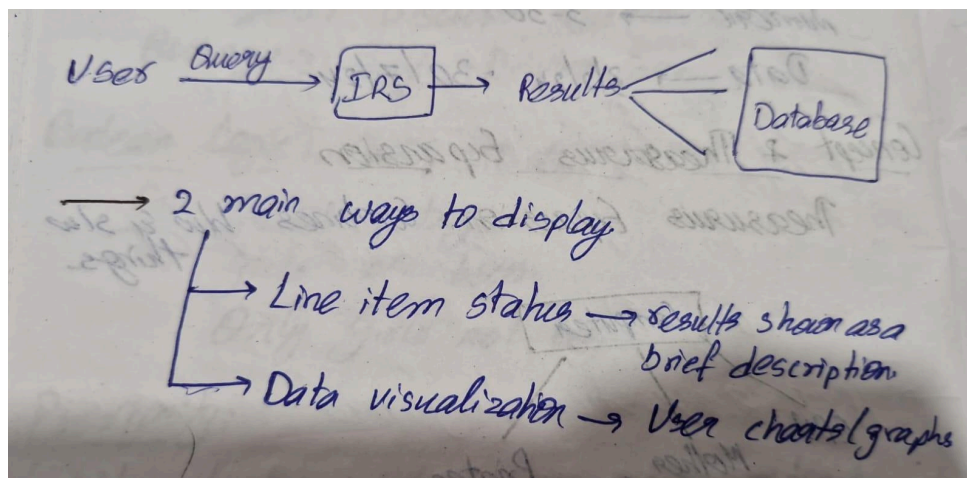 User Query → IRS → Results Database
→ 2 main ways to display
→ Line item status → results shown as a
brief description
→ Data visualization → User charts/graphs